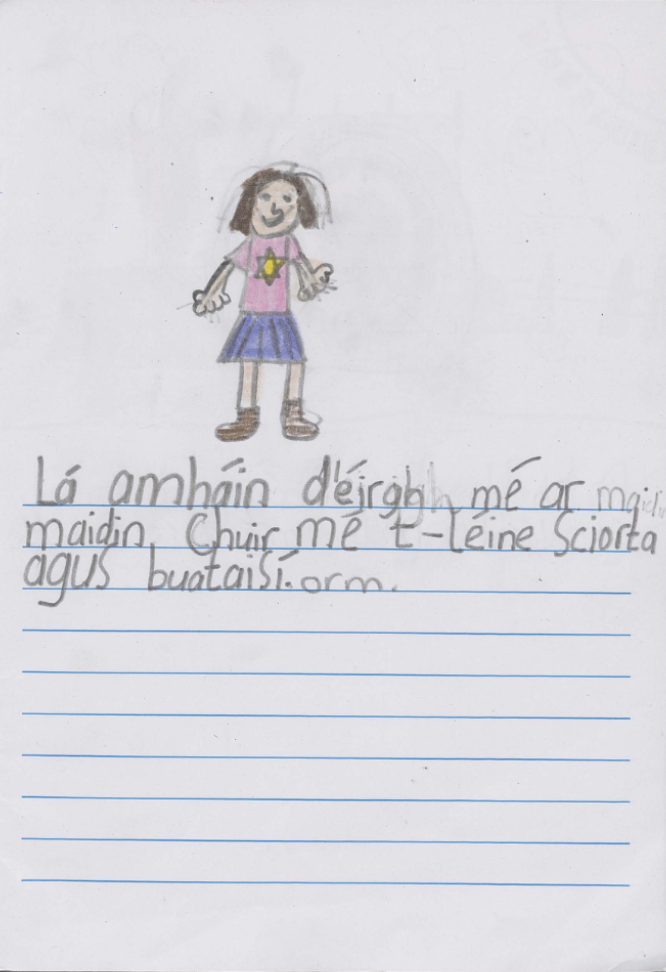 Lá amháin d'éirgh mé ar
maidin. Chuir mé t-léine Sciorta
agus buataisí. orm.